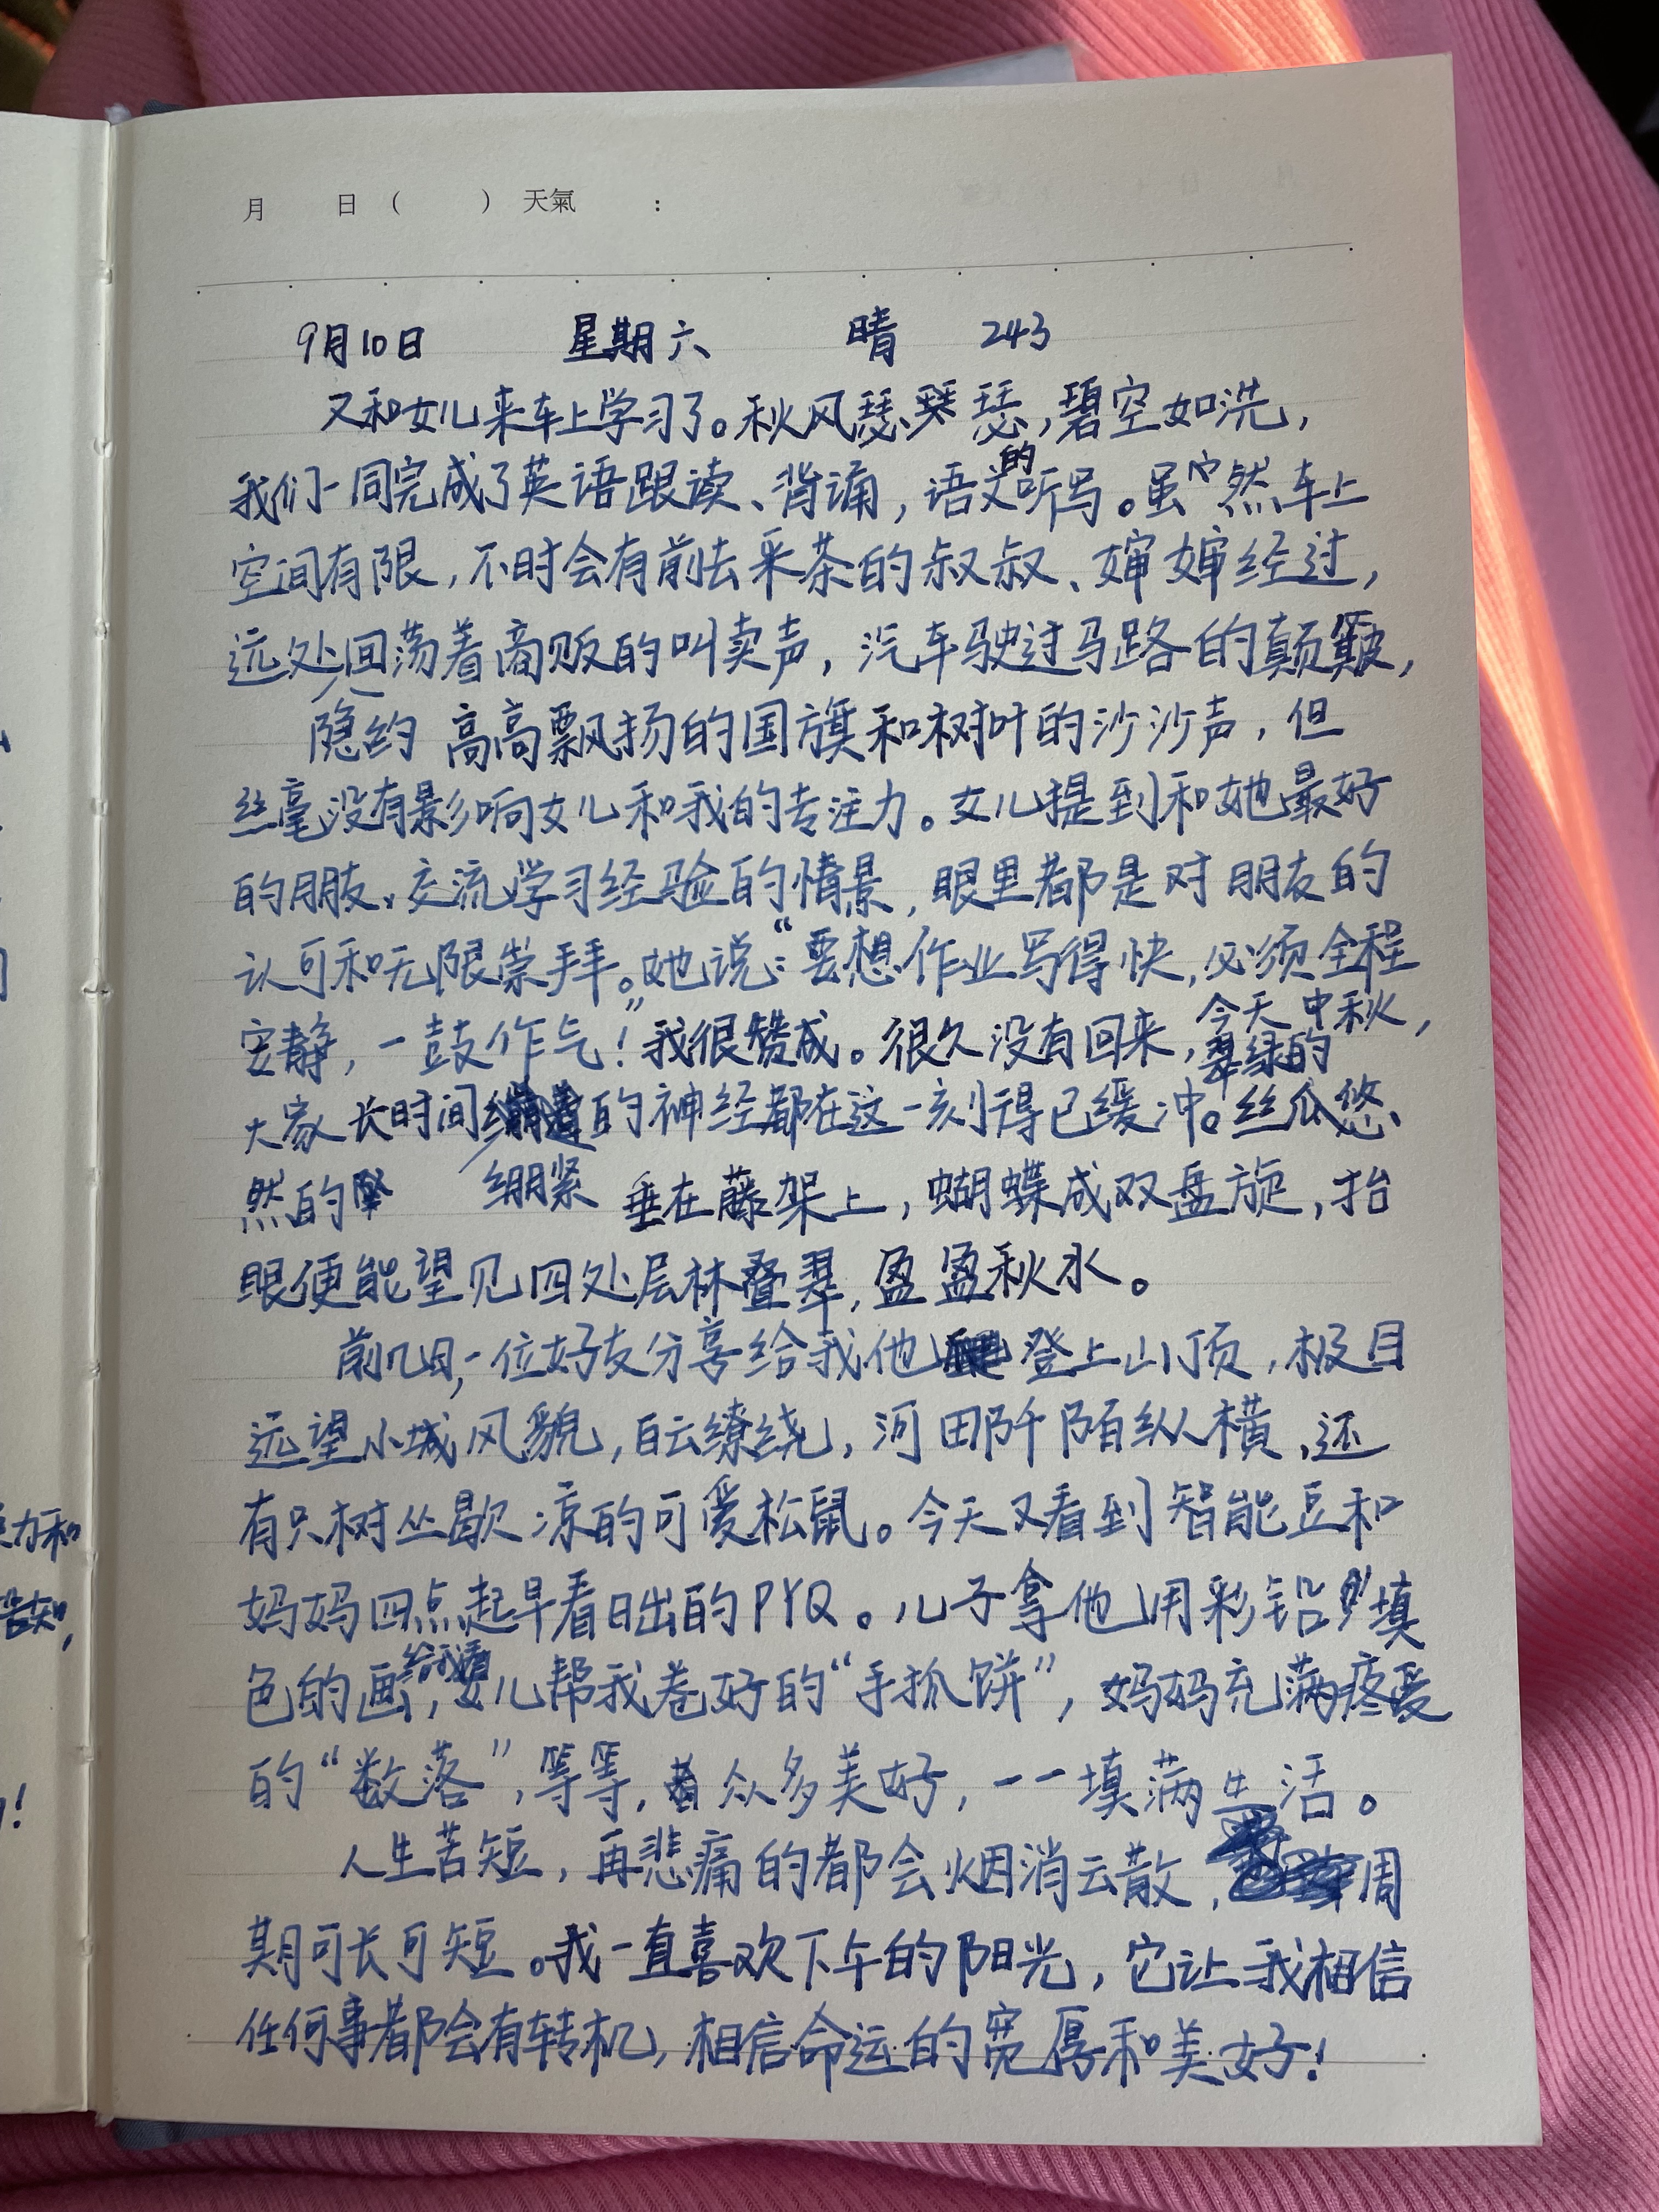 月 日（ ）天氣 ：
9月10日 星期六 晴 243
又和女儿来车上学习了。秋风瑟瑟，碧空如洗，
我们一同完成了英语跟读、背诵，语文的听写。虽然车上
空间有限，不时会有前去采茶的叔叔、婶婶经过，
远处回荡着商贩的叫卖声，汽车驶过马路的颠簸，
隐约高高飘扬的国旗和树叶的沙沙声，但
丝毫没有影响女儿和我的专注力。女儿提到和她最好
的朋友、交流学习经验的情景，眼里都是对朋友的
认可和无限崇拜。她说："要想作业写得快，必须全程
安静，一鼓作气！"我很赞成。很久没有回来，今天中秋，
大家长时间绷紧的神经都在这一刻得已缓冲。翠绿的丝瓜悠
然的垂在藤架上，蝴蝶成双盘旋，抬
眼便能望见四处层林叠翠，盈盈秋水。
前几日，一位好友分享给我他登上山顶，极目
远望小城风貌，白云缭绕，河田阡陌纵横，还
有只树丛歇凉的可爱松鼠。今天又看到智能豆和
妈妈四点起早看日出的PYQ。儿子拿他用彩铅填
色的画给我看，女儿帮我卷好的"手抓饼"，妈妈充满疼爱
的"数落"，等等，众多美好，一一填满生活。
人生苦短，再悲痛的都会烟消云散，周
期可长可短。我一直喜欢下午的阳光，它让我相信
任何事都会有转机，相信命运的宽厚和美好！